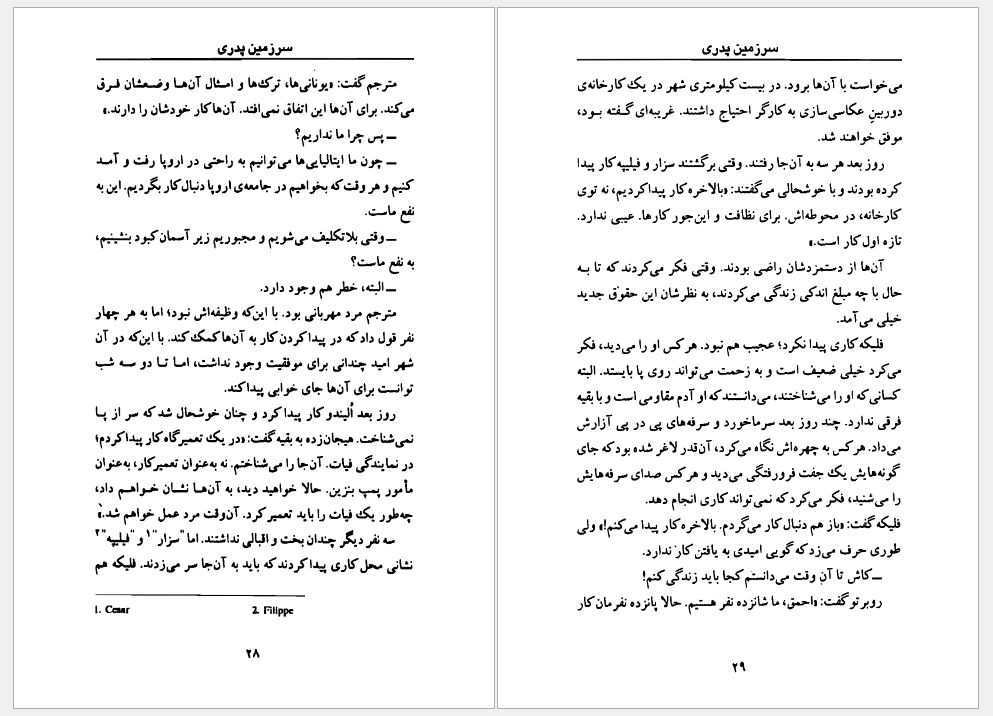 سرزمین پدری
مترجم گفت: «یونانی‌ها، ترک‌ها و امثال آن‌ها وضعشان فرق
می‌کند. برای آن‌ها این اتفاق نمی‌افتد. آن‌ها کار خودشان را دارند.»
ــ پس چرا ما نداریم؟
ــ چون ما ایتالیایی‌ها می‌توانیم به راحتی در اروپا رفت و آمد
کنیم و هر وقت که بخواهیم در جامعه‌ی اروپا دنبال کار بگردیم. این به
نفع ماست.
ــ وقتی بلاتکلیف می‌شویم و مجبوریم زیر آسمان کبود بنشینیم،
به نفع ماست؟
ــ البته، خطر هم وجود دارد.
مترجم مرد مهربانی بود. با این‌که وظیفه‌اش نبود؛ اما به هر چهار
نفر قول داد که در پیدا کردن کار به آن‌ها کمک کند. با این‌که در آن
شهر امید چندانی برای موفقیت وجود نداشت، اما تا دو سه شب
توانست برای آن‌ها جای خوابی پیدا کند.
روز بعد اُلیندو کار پیدا کرد و چنان خوشحال شد که سر از پا
نمی‌شناخت. هیجان‌زده به بقیه گفت: «در یک تعمیرگاه کار پیدا کردم؛
در نمایندگی فیات. آن‌جا را می‌شناختم. نه به‌عنوان تعمیرکار، به‌عنوان
مأمور پمپ بنزین. حالا خواهید دید، به آن‌ها نشان خواهم داد،
چه‌طور یک فیات را باید تعمیر کرد. آن‌وقت مرد عمل خواهم شد.»
سه نفر دیگر چندان بخت و اقبالی نداشتند. اما "سزار"۱ و "فیلیپه"۲
نشانی محل کاری پیدا کردند که باید به آن‌جا سر می‌زدند. فلیکه هم
1. Cesar 2. Filippe
۲۸
سرزمین پدری
می‌خواست با آن‌ها برود. در بیست کیلومتری شهر در یک کارخانه‌ی
دوربینِ عکاسی‌سازی به کارگر احتیاج داشتند. غریبه‌ای گفته بود،
موفق خواهند شد.
روز بعد هر سه به آن‌جا رفتند. وقتی برگشتند سزار و فیلیپه کار پیدا
کرده بودند و با خوشحالی می‌گفتند: «بالاخره کار پیدا کردیم، نه توی
کارخانه، در محوطه‌اش. برای نظافت و این‌جور کارها. عیبی ندارد.
تازه اول کار است.»
آن‌ها از دستمزدشان راضی بودند. وقتی فکر می‌کردند که تا به
حال با چه مبلغ اندکی زندگی می‌کردند، به نظرشان این حقوق جدید
خیلی می‌آمد.
فلیکه کاری پیدا نکرد؛ عجیب هم نبود. هر کس او را می‌دید، فکر
می‌کرد خیلی ضعیف است و به زحمت می‌تواند روی پا بایستد. البته
کسانی که او را می‌شناختند، می‌دانستند که او آدم مقاومی است و با بقیه
فرقی ندارد. چند روز بعد سرما خورد و سرفه‌های پی در پی آزارش
می‌داد. هر کس به چهره‌اش نگاه می‌کرد، آن‌قدر لاغر شده بود که جای
گونه‌هایش یک جفت فرورفتگی می‌دید و هر کس صدای سرفه‌هایش
را می‌شنید، فکر می‌کرد که نمی‌تواند کاری انجام دهد.
فلیکه گفت: «باز هم دنبال کار می‌گردم. بالاخره کار پیدا می‌کنم!» ولی
طوری حرف می‌زد که گویی امیدی به یافتن کار ندارد.
ــ کاش تا آن وقت می‌دانستم کجا باید زندگی کنم!
روبرتو گفت: «احمق، ما شانزده نفر هستیم. حالا پانزده نفرمان کار
۲۹